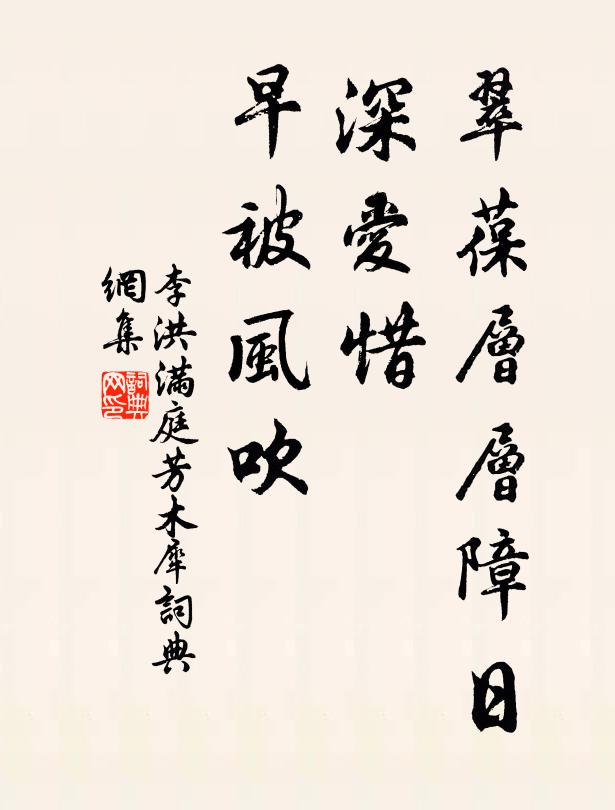 翠葆層層障日
深愛惜
早被風吹
李洪滿庭芳木犀詞典
網集
詞典
网印